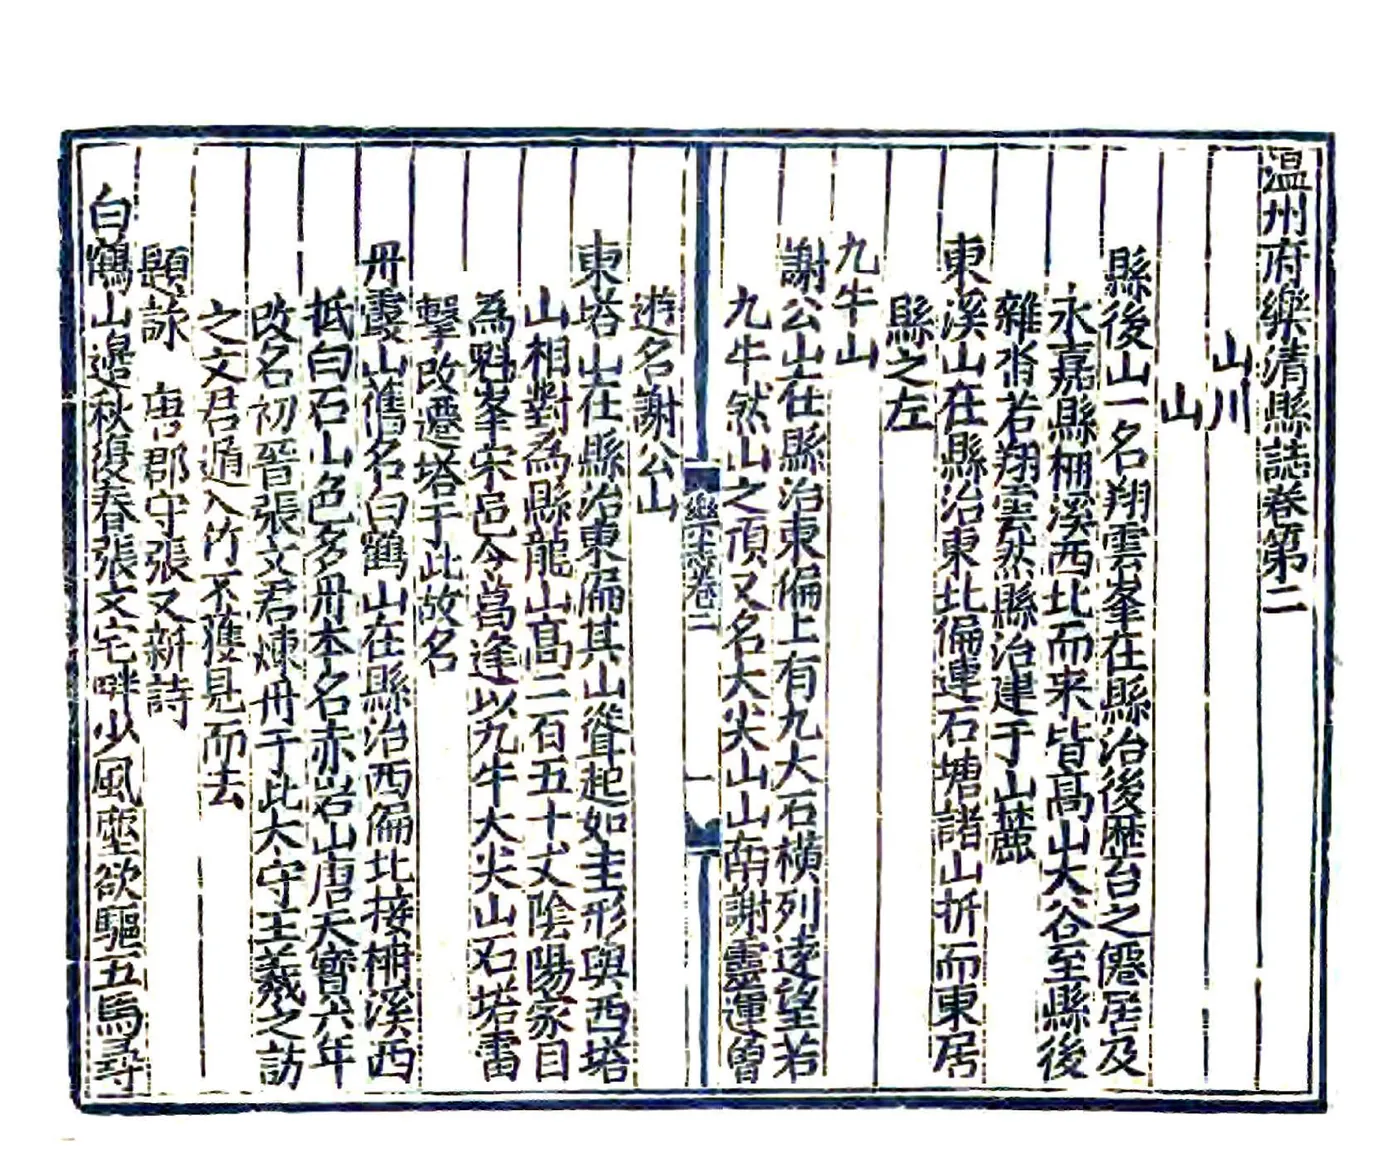 温州府樂清縣誌卷第二
山川
山
縣後山一名翔雲峯在縣治後歷台之僊居及
永嘉縣楠溪西北而来皆高山大谷至縣後
雜沓若翔雲然縣治建于山麓
東溪山在縣治東北偏連石塘諸山折而東居
縣之左
九牛山
謝公山在縣治東偏上有九大石橫列逺望若
九牛然山之頂又名大尖山山南謝靈運曾
樂志卷二
一
遊名謝公山
東塔山在縣治東偏其山聳起如圭形與西塔
山相對為縣龍山高二百五十丈陰陽家目
為魁峯宋邑令菖逢以九牛大尖山石塔雷
擊改遷塔于此故名
丹霞山舊名白鶴山在縣治西偏北接楠溪西
抵白石山色多丹本名赤岩山唐天寳六年
改名初晉張文君煉丹于此太守王羲之訪
之文君遁入竹不獲見而去
題詠 唐郡守張又新詩
白鶴山邉秋復春張文宅畔少風塵欲驅五馬尋